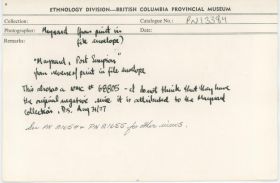 ETHNOLOGY DIVISION—BRITISH COLUMBIA PROVINCIAL MUSEUM
Collection: Catalogue No.: PN13384
Photographer: Maynard (from print in
file envelope)
Remarks:
"Maynard, Port Simpson"
from reverse of print in file envelope
This also a # 68805 - I do not think that they have
the original negative since it is attributed to the Maynard
Collection, Aug 31/77
See PN 1654 & PN 1655 for other views.